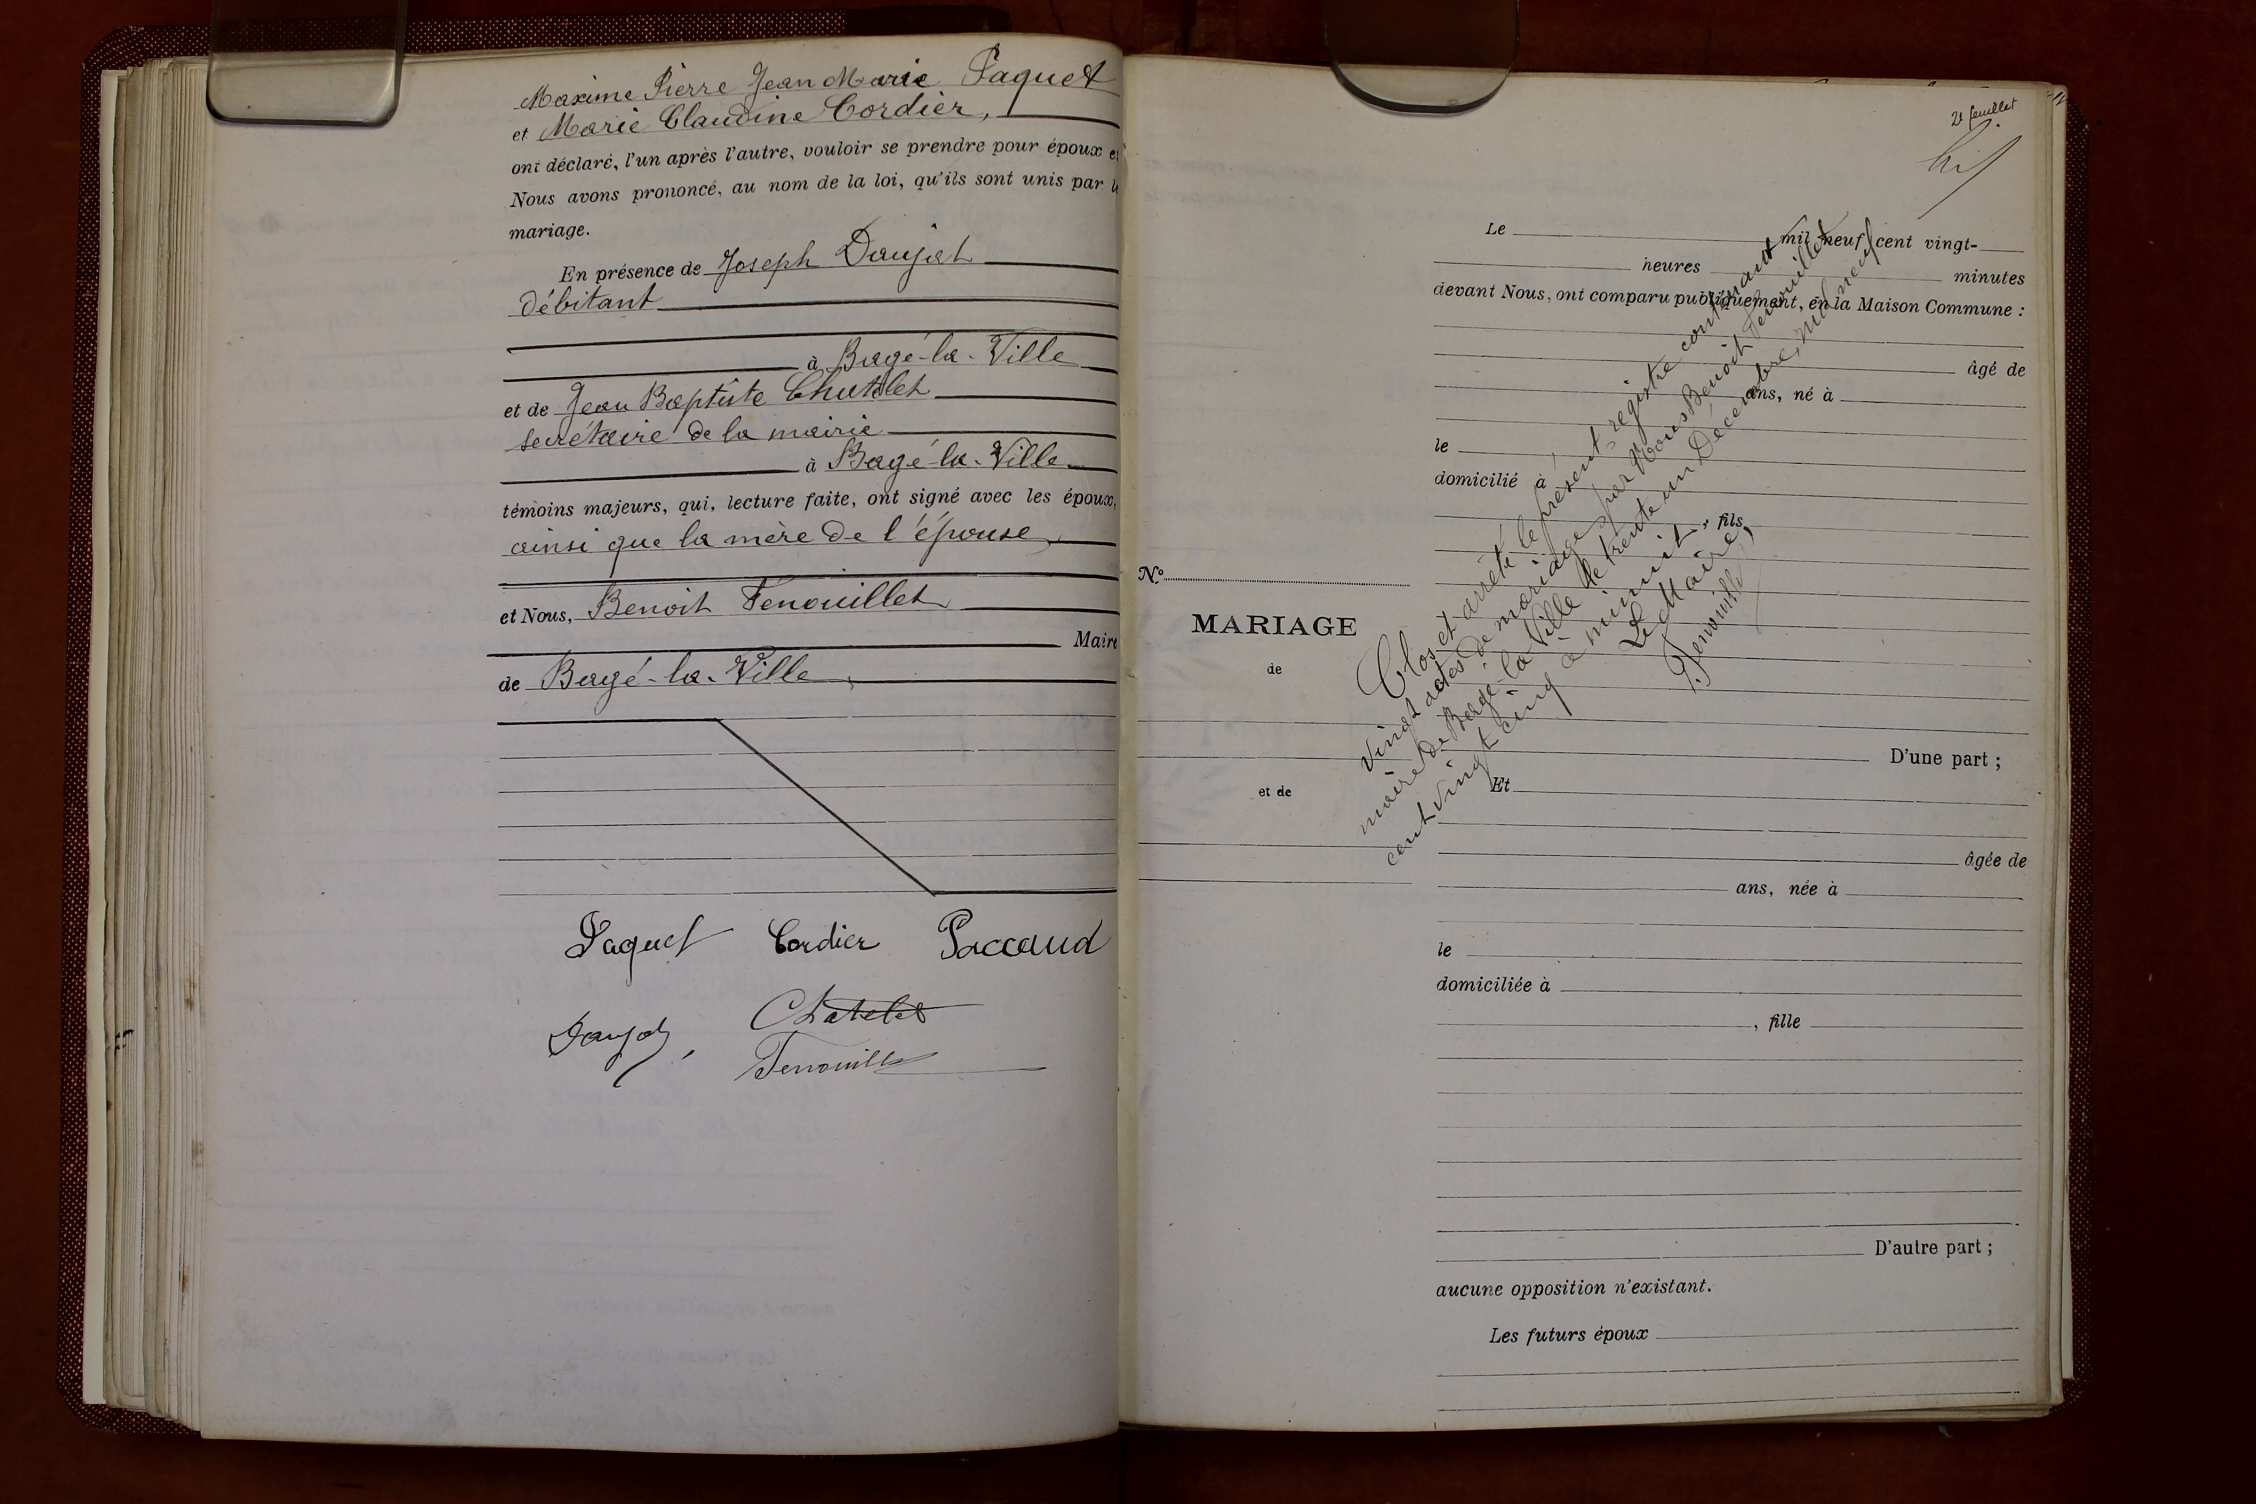 Maxime Pierre Jean Marie Paquet
et Marie Claudine Cordier,
ont déclaré, l'un après l'autre, vouloir se prendre pour époux et
Nous avons prononcé, au nom de la loi, qu'ils sont unis par le
mariage.
En présence de Joseph Daujat
débitant
à Bagé-la-Ville
et de Jean Baptiste Chatelet
secrétaire de la mairie
à Bagé-la-Ville
témoins majeurs, qui, lecture faite, ont signé avec les époux,
ainsi que la mère de l'épouse,
et Nous, Benoit Fenouillet
Maire
de Bagé-la-Ville,
Paquet Cordier Paccaud
Daujat, Chatelet
Fenouillet
21 feuillet
N°
MARIAGE
de
et de
Le mil neuf cent vingt-
heures minutes
devant Nous, ont comparu publiquement, en la Maison Commune :
âgé de
ans, né à
le
domicilié à
, fils
D'une part ;
Et
âgée de
ans, née à
le
domiciliée à
, fille
D'autre part ;
aucune opposition n'existant.
Les futurs époux
Clos et arrêté le présent registre contenant
vingt actes de mariage par Nous Benoit Fenouillet
maire de Bagé-la-Ville le trente un Décembre, mil neuf
cent vingt cinq à minuit.
Le Maire,
B. Fenouillet